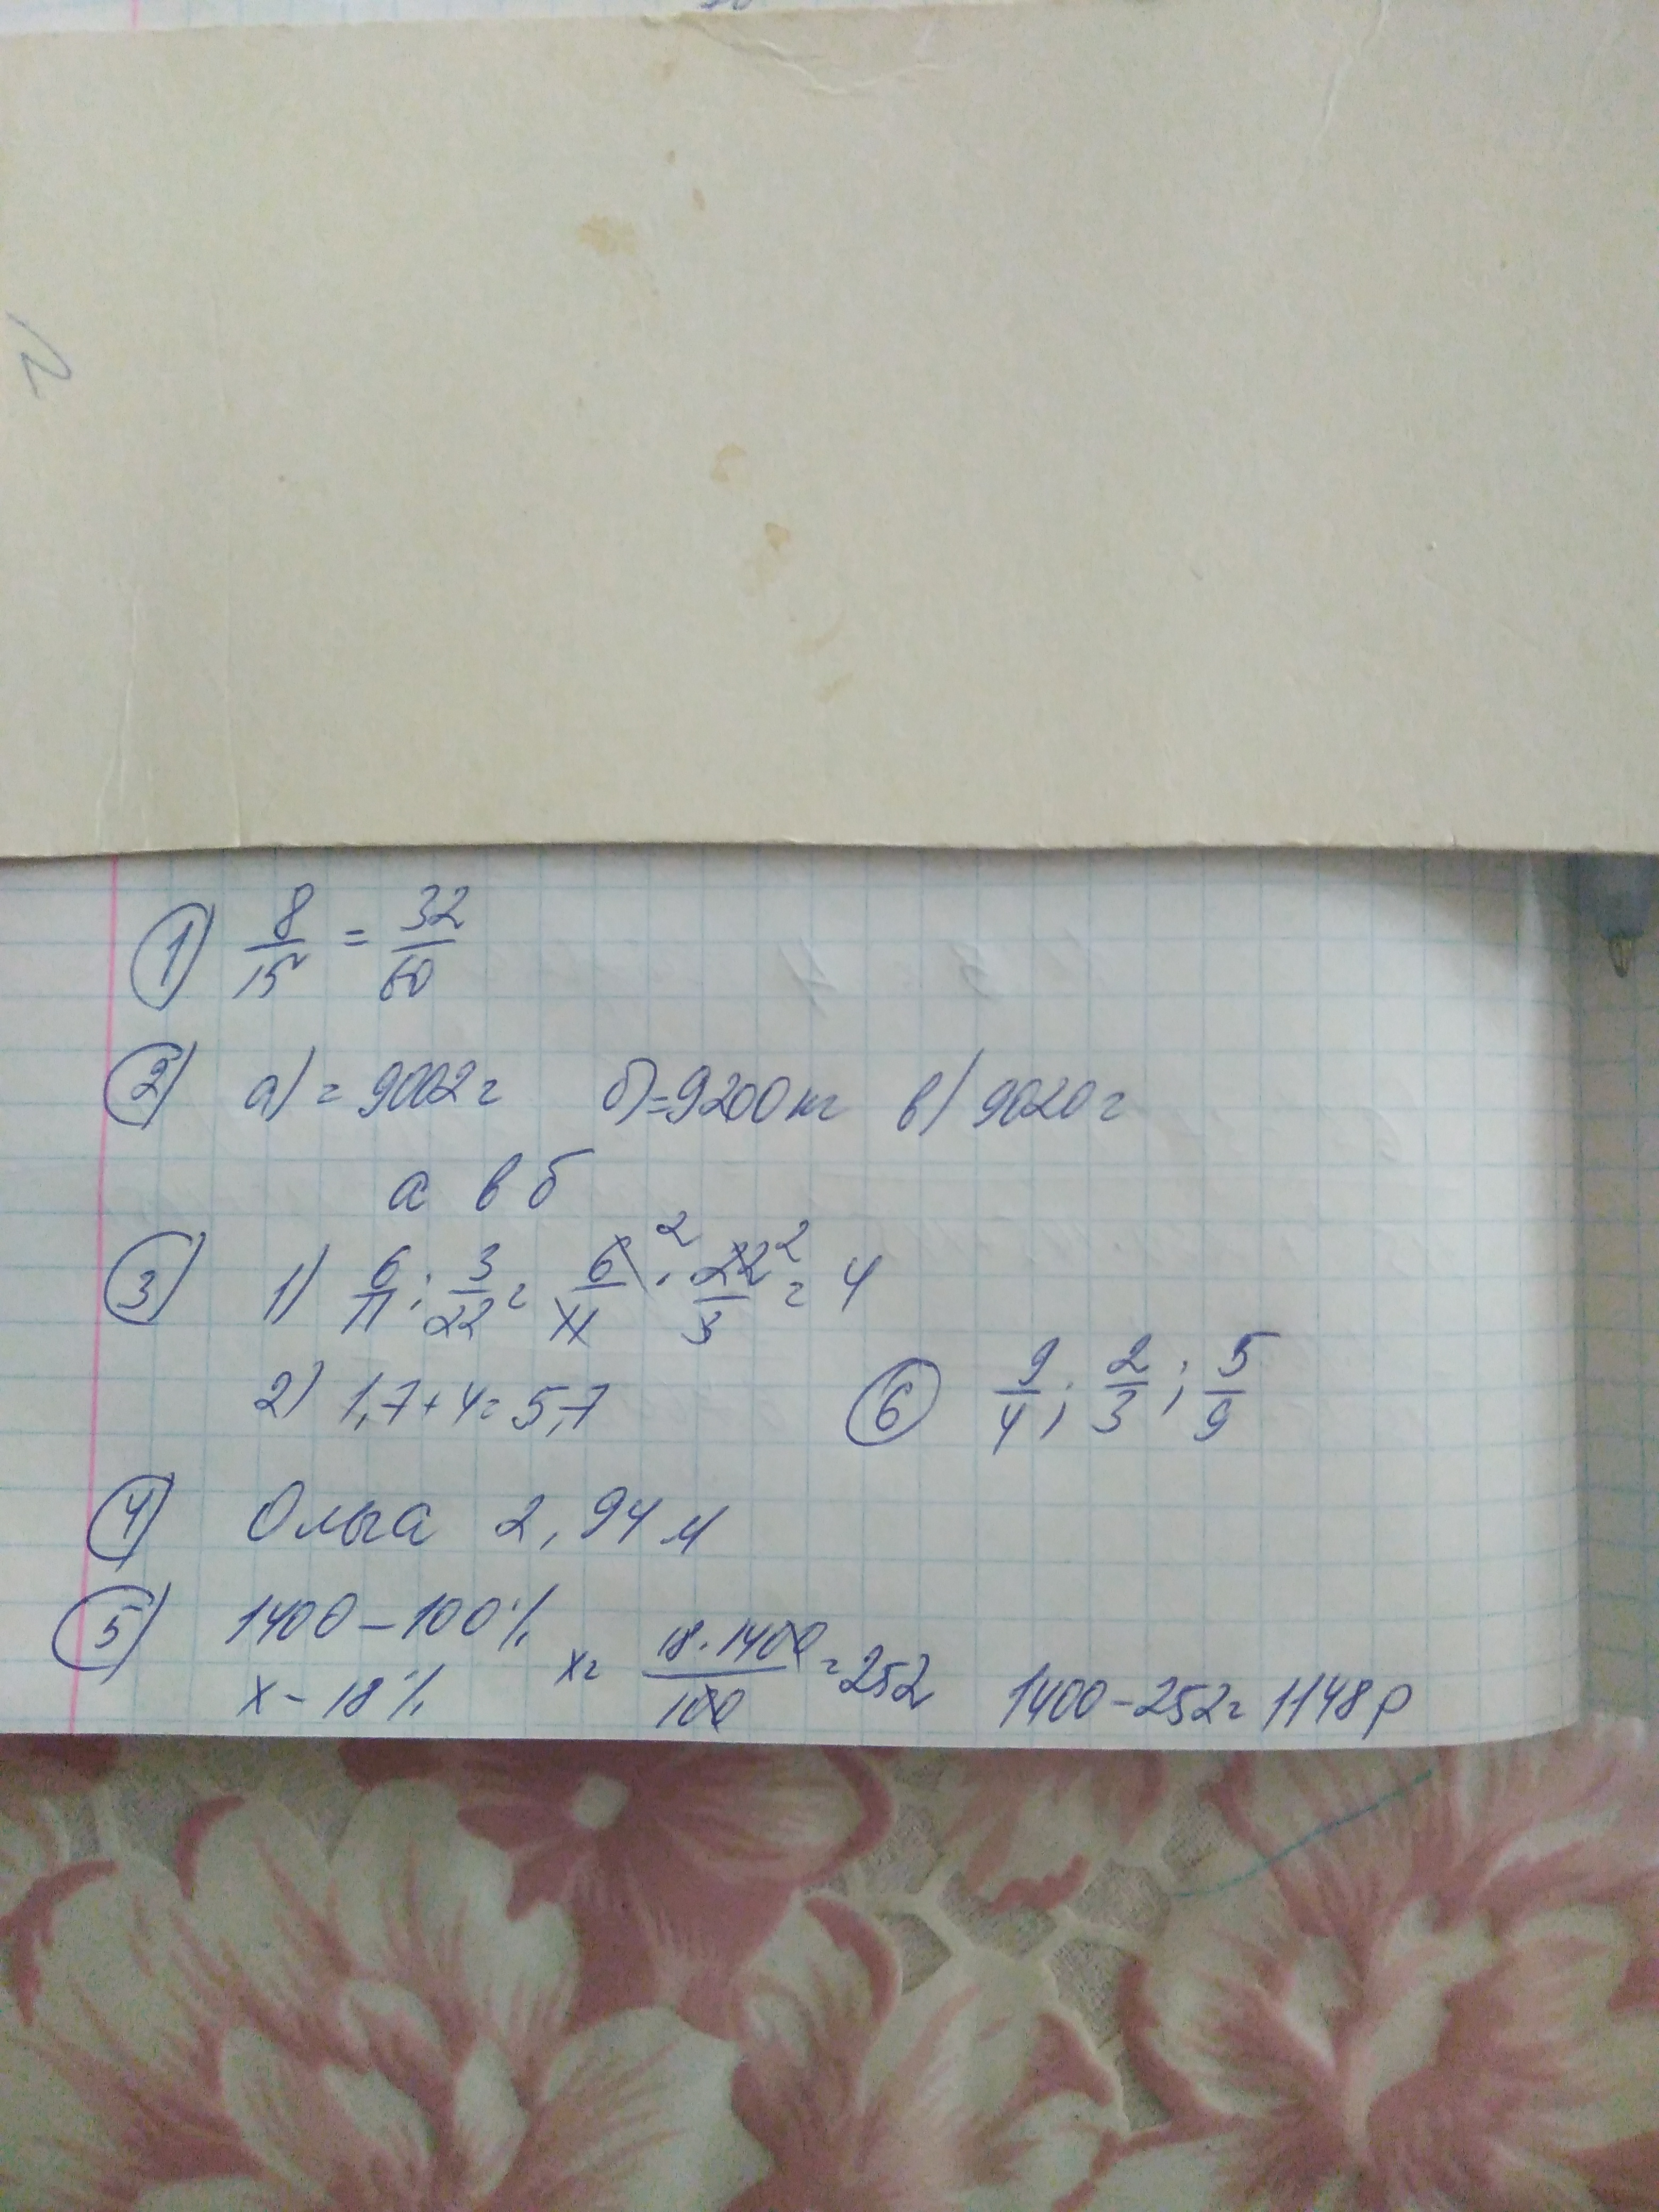 1) 8/15 = 32/60
2) а) = 9002г б) = 9200кг в) 9020г
а в б
3) 1) 6/11 : 3/22 = 6/11 · 22/3 = 4
2 2
2) 1,7+4=5,7
6) 9/4; 2/3; 5/9
4) Ольга 2,94 м
5) 1400 – 100%
х – 18%
х = 18·1400/100 = 252 1400-252=1148р